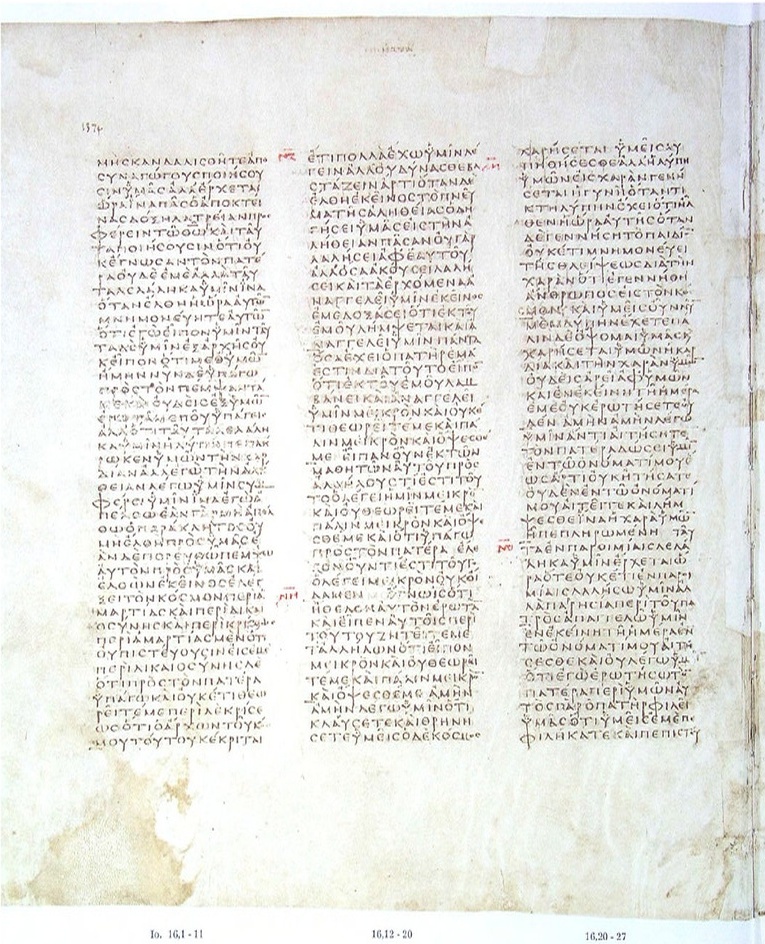 ΜΗϹΚΑΝΔΑΛΙϹΘΗΤΕΑΠΟ
ϹΥΝΑΓΩΓΟΥϹΠΟΙΗϹΟΥ
ϹΙΝΥΜΑϹΑΛΛΕΡΧΕΤΑΙ
ΩΡΑΙΝΑΠΑϹΟΑΠΟΚΤΕΙ
ΝΑϹΔΟΞΗΛΑΤΡΕΙΑΝΠΡΟϹ
ΦΕΡΕΙΝΤΩΘΩΚΑΙΤΑΥ
ΤΑΠΟΙΗϹΟΥϹΙΝΟΤΙΟΥ
ΚΕΓΝΩϹΑΝΤΟΝΠΑΤΕ
ΡΑΟΥΔΕΕΜΕΑΛΛΑΤΑΥ
ΤΑΛΕΛΑΛΗΚΑΥΜΙΝΙΝΑ
ΟΤΑΝΕΛΘΗΗΩΡΑΑΥΤΩ
ΜΝΗΜΟΝΕΥΗΤΕΑΥΤΩ
ΟΤΙΕΓΩΕΙΠΟΝΥΜΙΝΤΑΥ
ΤΑΔΕΥΜΙΝΕΞΑΡΧΗϹΟΥ
ΚΕΙΠΟΝΟΤΙΜΕΘΥΜΩ
ΗΜΗΝΝΥΝΔΕΥΠΑΓΩ
ΠΡΟϹΤΟΝΠΕΜΨΑΝΤΑ
ΜΕΚΑΙΟΥΔΕΙϹΕΞΥΜΩ
ΕΡΩΤΑΜΕΠΟΥΥΠΑΓΕΙϹ
ΑΛΛΟΤΙΤΑΥΤΑΛΕΛΑΛΗ
ΚΑΥΜΙΝΗΛΥΠΗΠΕΠΛΗ
ΡΩΚΕΝΥΜΩΝΤΗΝΚΑΡ
ΔΙΑΝΑΛΛΕΓΩΤΗΝΑΛΗ
ΘΕΙΑΝΛΕΓΩΥΜΙΝϹΥΜ
ΦΕΡΕΙΥΜΙΝΙΝΑΕΓΩΑ
ΠΕΛΘΩΕΑΝΓΑΡΜΗΑΠΕΛ
ΘΩΟΠΑΡΑΚΛΗΤΟϹΟΥ
ΜΗΕΛΘΗΠΡΟϹΥΜΑϹΕ
ΑΝΔΕΠΟΡΕΥΘΩΠΕΜΨΩ
ΑΥΤΟΝΠΡΟϹΥΜΑϹΚΑΙ
ΕΛΘΩΝΕΚΕΙΝΟϹΕΛΕΓ
ΞΕΙΤΟΝΚΟϹΜΟΝΠΕΡΙΑ
ΜΑΡΤΙΑϹΚΑΙΠΕΡΙΔΙΚΑΙ
ΟϹΥΝΗϹΚΑΙΠΕΡΙΚΡΙϹΕΩϹ
ΠΕΡΙΑΜΑΡΤΙΑϹΜΕΝΟΤΙ
ΟΥΠΙϹΤΕΥΟΥϹΙΝΕΙϹΕΜΕ
ΠΕΡΙΔΙΚΑΙΟϹΥΝΗϹΔΕ
ΟΤΙΠΡΟϹΤΟΝΠΑΤΕΡΑ
ΥΠΑΓΩΚΑΙΟΥΚΕΤΙΘΕΩ
ΡΕΙΤΕΜΕΠΕΡΙΔΕΚΡΙϹΕ
ΩϹΟΤΙΟΑΡΧΩΝΤΟΥΚΟϹ
ΜΟΥΤΟΥΤΟΥΚΕΚΡΙΤΑΙ
ΕΤΙΠΟΛΛΑΕΧΩΥΜΙΝΛΕ
ΓΕΙΝΑΛΛΟΥΔΥΝΑϹΘΕΒΑ
ϹΤΑΖΕΙΝΑΡΤΙΟΤΑΝΔΕ
ΕΛΘΗΕΚΕΙΝΟϹΤΟΠΝΕΥ
ΜΑΤΗϹΑΛΗΘΕΙΑϹΟΔΗ
ΓΗϹΕΙΥΜΑϹΕΙϹΤΗΝΑ
ΛΗΘΕΙΑΝΠΑϹΑΝΟΥΓΑΡ
ΛΑΛΗϹΕΙΑΦΕΑΥΤΟΥ
ΑΛΛΟϹΑΑΚΟΥϹΕΙΛΑΛΗ
ϹΕΙΚΑΙΤΑΕΡΧΟΜΕΝΑΑ
ΝΑΓΓΕΛΕΙΥΜΙΝΕΚΕΙΝΟϹ
ΕΜΕΔΟΞΑϹΕΙΟΤΙΕΚΤΟΥ
ΕΜΟΥΛΗΜΨΕΤΑΙΚΑΙΑ
ΝΑΓΓΕΛΕΙΥΜΙΝΠΑΝΤΑ
ΟϹΑΕΧΕΙΟΠΑΤΗΡΕΜΑ
ΕϹΤΙΝΔΙΑΤΟΥΤΟΕΙΠΟ
ΟΤΙΕΚΤΟΥΕΜΟΥΛΑΜ
ΒΑΝΕΙΚΑΙΑΝΑΓΓΕΛΕΙ
ΥΜΙΝΜΕΙΚΡΟΝΚΑΙΟΥΚΕ
ΤΙΘΕΩΡΕΙΤΕΜΕΚΑΙΠΑ
ΛΙΝΜΕΙΚΡΟΝΚΑΙΟΨΕϹΘΕ
ΜΕΕΙΠΑΝΟΥΝΕΚΤΩΝ
ΜΑΘΗΤΩΝΑΥΤΟΥΠΡΟϹ
ΑΛΛΗΛΟΥϹΤΙΕϹΤΙΤΟΥ
ΤΟΟΛΕΓΕΙΗΜΙΝΜΕΙΚΡΟ
ΚΑΙΟΥΘΕΩΡΕΙΤΕΜΕΚΑΙ
ΠΑΛΙΝΜΕΙΚΡΟΝΚΑΙΟΨΕ
ϹΘΕΜΕΚΑΙΟΤΙΥΠΑΓΩ
ΠΡΟϹΤΟΝΠΑΤΕΡΑΕΛΕ
ΓΟΝΟΥΝΤΙΕϹΤΙΤΟΥΤΟ
ΟΛΕΓΕΙΜΕΙΚΡΟΝΟΥΚΟΙ
ΔΑΜΕΝΕΓΝΩΙϹΟΤΙ
ΗΘΕΛΟΝΑΥΤΟΝΕΡΩΤΑ
ΚΑΙΕΙΠΕΝΑΥΤΟΙϹΠΕΡΙ
ΤΟΥΤΟΥΖΗΤΕΙΤΕΜΕ
ΤΑΛΛΗΛΩΝΟΤΙΕΙΠΟΝ
ΜΕΙΚΡΟΝΚΑΙΟΥΘΕΩΡΕΙ
ΤΕΜΕΚΑΙΠΑΛΙΝΜΕΙΚΡΟ
ΚΑΙΟΨΕϹΘΕΜΕΑΜΗΝ
ΑΜΗΝΛΕΓΩΥΜΙΝΟΤΙ
ΚΛΑΥϹΕΤΕΚΑΙΘΡΗΝΗ
ϹΕΤΕΥΜΕΙϹΟΔΕΚΟϹΜΟϹ
ΧΑΡΗϹΕΤΑΙΥΜΕΙϹΛΥ
ΠΗΘΗϹΕϹΘΕΑΛΛΗΛΥΠΗ
ΥΜΩΝΕΙϹΧΑΡΑΝΓΕΝΗ
ϹΕΤΑΙΗΓΥΝΗΟΤΑΝΤΙ
ΚΤΗΛΥΠΗΝΕΧΕΙΟΤΙΗΛ
ΘΕΝΗΩΡΑΑΥΤΗϹΟΤΑΝ
ΔΕΓΕΝΝΗϹΗΤΟΠΑΙΔΙΟ
ΟΥΚΕΤΙΜΝΗΜΟΝΕΥΕΙ
ΤΗϹΘΛΕΙΨΕΩϹΔΙΑΤΗΝ
ΧΑΡΑΝΟΤΙΕΓΕΝΝΗΘΗ
ΑΝΘΡΩΠΟϹΕΙϹΤΟΝΚΟ
ϹΜΟΝΚΑΙΥΜΕΙϹΟΥΝΝΥΝ
ΜΕΝΛΥΠΗΝΕΧΕΤΕΠΑ
ΛΙΝΔΕΟΨΟΜΑΙΥΜΑϹΚΑΙ
ΧΑΡΗϹΕΤΑΙΥΜΩΝΗΚΑΡ
ΔΙΑΚΑΙΤΗΝΧΑΡΑΝΥΜΩ
ΟΥΔΕΙϹΑΡΕΙΑΦΥΜΩΝ
ΚΑΙΕΝΕΚΕΙΝΗΤΗΗΜΕΡΑ
ΕΜΕΟΥΚΕΡΩΤΗϹΕΤΕΟΥ
ΔΕΝΑΜΗΝΑΜΗΝΛΕΓΩ
ΥΜΙΝΑΝΤΙΑΙΤΗϹΗΤΕ
ΤΟΝΠΑΤΕΡΑΔΩϹΕΙΥΜΙ
ΕΝΤΩΟΝΟΜΑΤΙΜΟΥΕ
ΩϹΑΡΤΙΟΥΚΗΤΗϹΑΤΕ
ΟΥΔΕΝΕΝΤΩΟΝΟΜΑΤΙ
ΜΟΥΑΙΤΕΙΤΕΚΑΙΛΗΜ
ΨΕϹΘΕΙΝΑΗΧΑΡΑΥΜΩ
ΗΠΕΠΛΗΡΩΜΕΝΗΤΑΥ
ΤΑΕΝΠΑΡΟΙΜΙΑΙϹΛΕΛΑ
ΛΗΚΑΥΜΙΝΕΡΧΕΤΑΙΩ
ΡΑΟΤΕΟΥΚΕΤΙΕΝΠΑΡΟΙ
ΜΙΑΙϹΛΑΛΗϹΩΥΜΙΝΑΛ
ΛΑΠΑΡΗϹΙΑΠΕΡΙΤΟΥΠΑ
ΤΡΟϹΑΠΑΓΓΕΛΩΥΜΙΝ
ΕΝΕΚΕΙΝΗΤΗΗΜΕΡΑΕΝ
ΤΩΟΝΟΜΑΤΙΜΟΥΑΙΤΗ
ϹΕϹΘΕΚΑΙΟΥΛΕΓΩΥΜΙ
ΟΤΙΕΓΩΕΡΩΤΗϹΩΤΟΝ
ΠΑΤΕΡΑΠΕΡΙΥΜΩΝΑΥ
ΤΟϹΓΑΡΟΠΑΤΗΡΦΙΛΕΙ
ΥΜΑϹΟΤΙΥΜΕΙϹΕΜΕΠΕ
ΦΙΛΗΚΑΤΕΚΑΙΠΕΠΙϹΤΕΥ
Io. 16,1 - 11
16,12 - 20
16,20 - 27